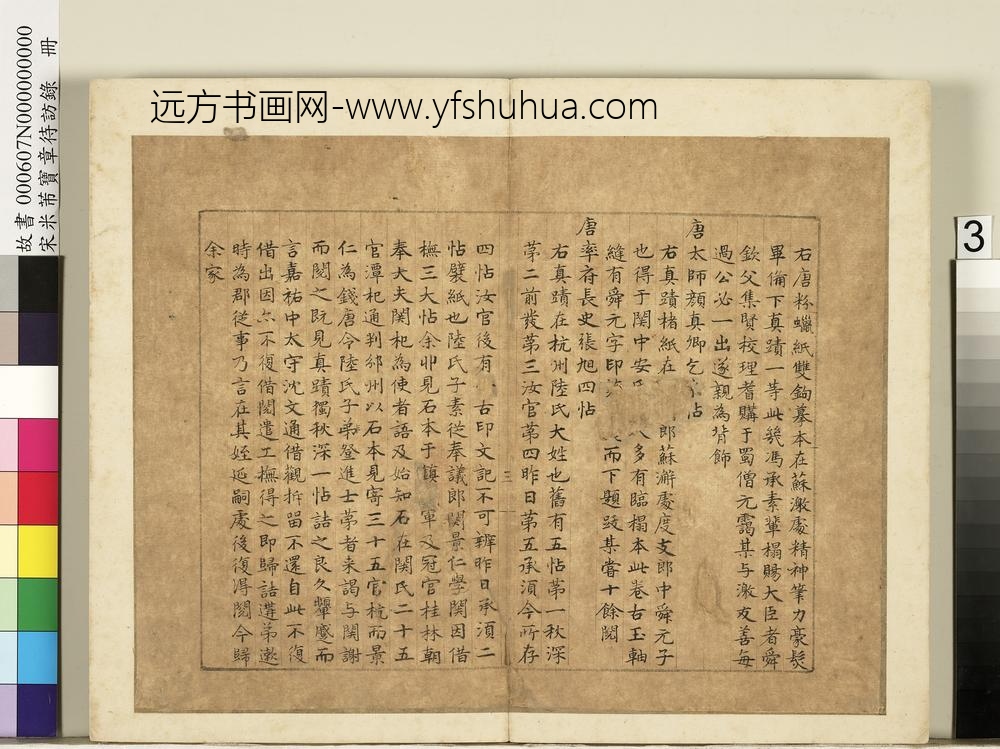 远方书画网-www.yfshuhua.com
故書 000607N000000000
宋米芾寶章待訪錄 冊
3
右唐粉蠟紙雙鉤摹本在蘇激處精神筆力豪髮
畢備下真蹟一等此幾馮承素輩搨賜大臣者舜
欽父集賢校理耆購于蜀僧元靄某与激友善每
過公必一出遂親為背飾
唐太師顏真卿乞 帖
右真蹟楮紙在 郎蘇澥處度支郎中舜元子
也得于關中安 多有臨搨本此卷古玉軸
縫有舜元字印 而下題跋某嘗十餘閱
唐率府長史張旭四帖
右真蹟在杭州陸氏大姓也舊有五帖第一秋深
第二前發第三汝官第四昨日第五承須今所存
三
四帖汝官後有 古印文記不可辨昨日承須二
帖襞紙也陸氏子素從奉議郎関景仁學関因借
橅三大帖余丱見石本于鎮 軍及冠官桂林朝
奉大夫関杞為使者語及始知石在関氏二十五
官潭杞通判邠州以石本見寄三十五官杭而景
仁為錢唐令陸氏子弟登進士第者来謁与関謝
而閱之既見真蹟獨秋深一帖詰之良久顰蹙而
言嘉祐中太守沈文通借觀拆留不還自此不復
借出因亦不復借閱遣工橅得之即歸詰遘弟遬
時為郡從事乃言在其姪延嗣處後復淂閱今歸
余家